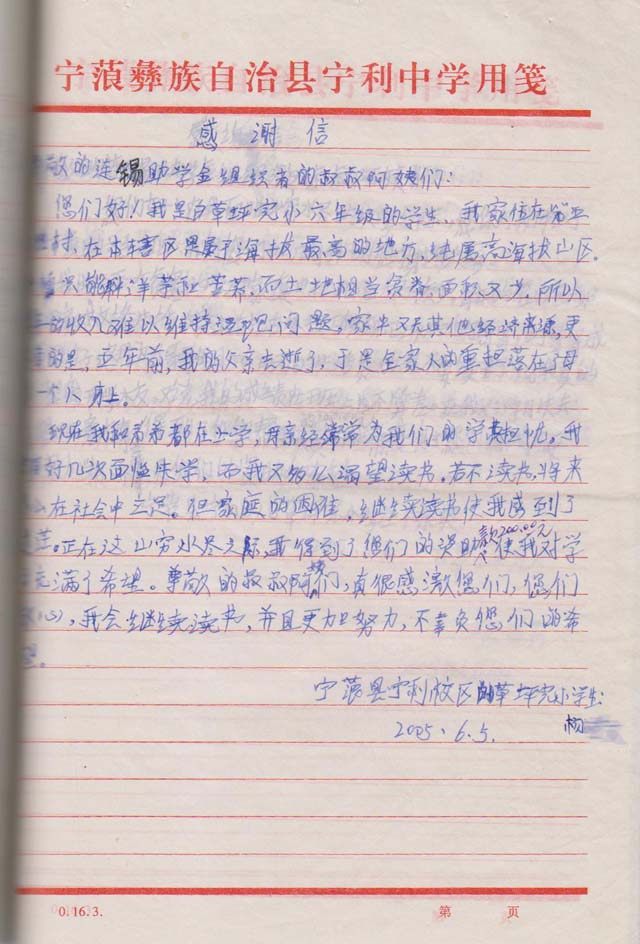 宁蒗彝族自治县宁利中学用笺
感谢信
敬的连锡助学金组织者的叔叔阿姨们:
您们好!我是白草坪完小六年级的学生,我家住在
村,在本辖区是属于海拔最高的地方,纯属高海拔山区。
只能种洋芋和苦荞,而土地相当贫脊,面积又少,所以
的收入难以维持温饱问题,家中又无其他经济来源,更
的是,五年前,我的父亲去逝了,于是全家人的重担落在了母
一个人身上。
现在我和弟弟都在上学,母亲经常为我们的学费担忧。我
好几次面临失学,而我又多么渴望读书。若不读书,将来
在社会中立足。但家庭的困难,继续读书使我感到了
。正在这山穷水尽之际,我得到了您们的资助款200.00元,使我对学
充满了希望。尊敬的叔叔阿姨们,真很感激您们,您们
心),我会继续读书,并且更加努力,不辜负您们的希
望。
宁蒗县宁利校区草坪完小学生:
2005.6.5. 杨
0.16.3. 第 页